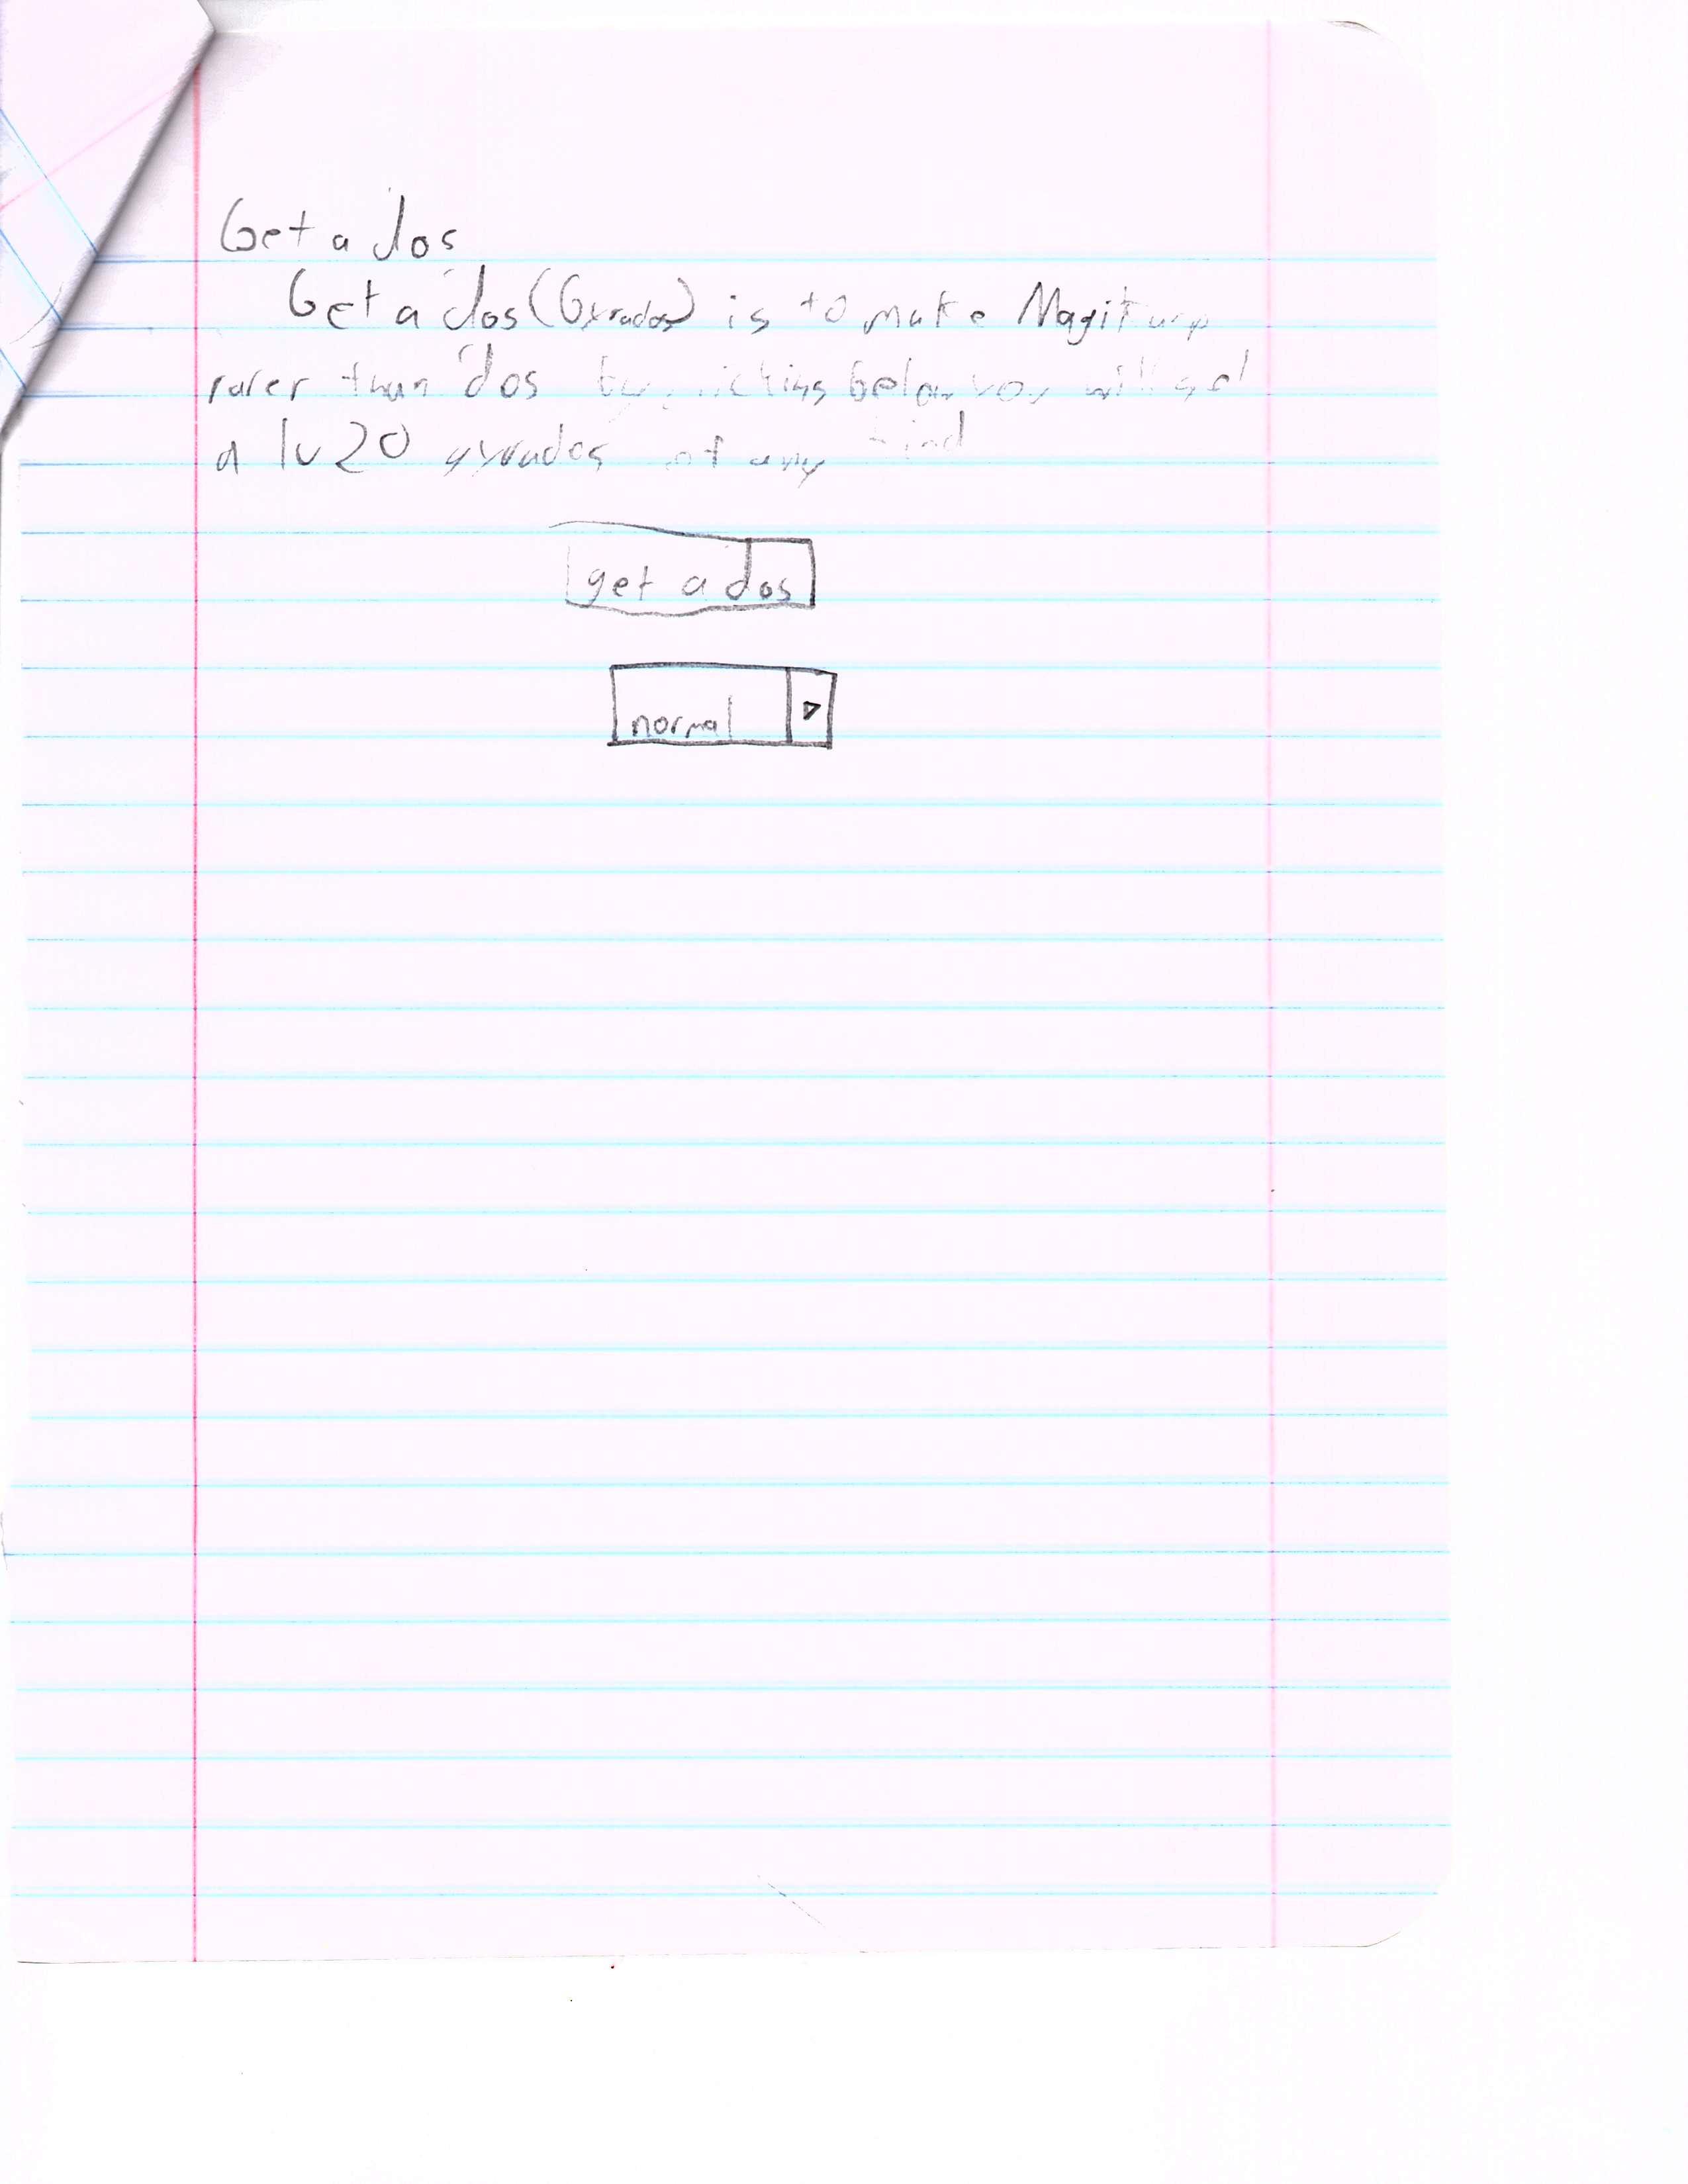 Get a dos
Get a dos (Gyrados) is to make Magikarp
rarer than dos by clicking below you will get
a lv 20 gyrados of any kind
get a dos
normal